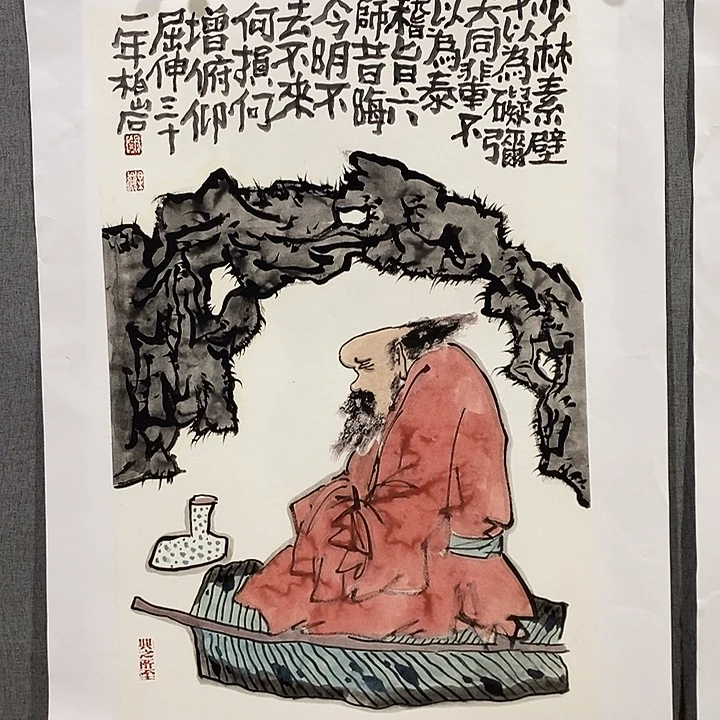 少林素壁
不以為礙彌
天同輩不
以為泰
稽首六
師昔晦
今明不
去不來
何損何
增俯仰
屈伸三十
一年柏岩